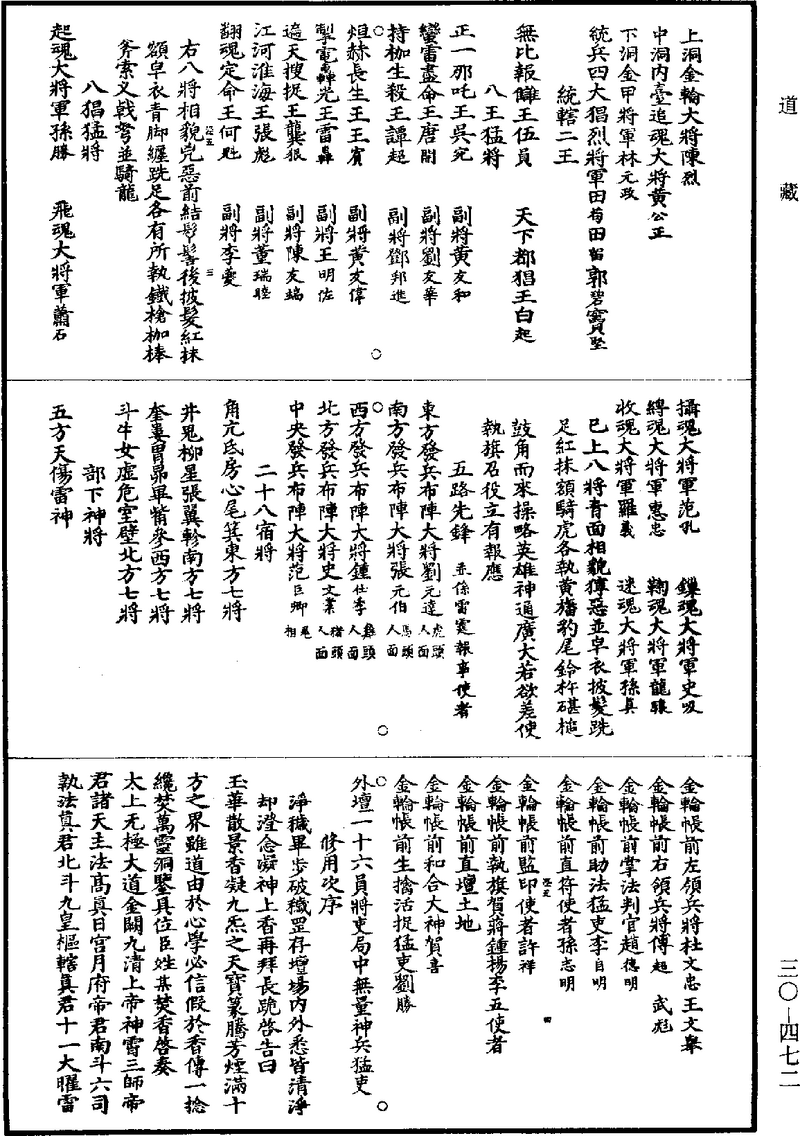 道藏
上洞金輪大將陳烈
中洞內臺追魂大將黃公正
下洞金甲將軍林元政
統兵四大猖烈將軍田苟田留郭碧竇堅
統轄二王
無比報讎王伍員　天下都猖王白起
八王猛將
正一那吒王吳完　副將黃友和
蠻雷盡命王唐開　副將劉友華
持枷生殺王譚超　副將鄧邦進
烜赫長生王王賓　副將黃友偉
掣電轟光王雷轟　副將王明佐
遮天搜捉王龔狠　副將陳友端
江河淮海王張彪　副將董瑞睦
翻魂定命王何魁　副將李慶
右八將相貌兇惡前結髟髻後披髮紅抹
額皁衣青脚纏跣足各有所執鐵槍枷棒
斧索义戟弩並騎龍
八猖猛將
起魂大將軍孫勝　飛魂大將軍蕭石
攝魂大將軍范孔　鏁魂大將軍史吸
縛魂大將軍惠忠　鞫魂大將軍龍驤
收魂大將軍羅義　迷魂大將軍孫真
已上八將青面相貌獰惡並皁衣披髮跣
足紅抹額騎虎各執黃旛豹尾鈴杵碪槌
鼓角而來操略英雄神通廣大若欲差使
執旗召役立有報應
五路先鋒 並係雷霆報事使者
東方發兵布陣大將劉元達 虎頭人面
南方發兵布陣大將張元伯 馬頭人面
西方發兵布陣大將鍾仕季 雞頭人面
北方發兵布陣大將史文業 猪頭人面
中央發兵布陣大將范巨卿 鬼相
二十八宿將
角亢氐房心尾箕東方七將
井鬼柳星張翼軫南方七將
奎婁胃昴畢觜參西方七將
斗牛女虛危室壁北方七將
部下神將
五方天傷雷神
金輪帳前左領兵將杜文忠王文舉
金輪帳前右領兵將傅超　武彪
金輪帳前掌法判官趙德明
金輪帳前助法猛吏李自明
金輪帳前直符使者孫志明
金輪帳前監印使者許祥
金輪帳前執旗賀蔣鍾楊李五使者
金輪帳前直壇土地
金輪帳前和合大神賀喜
金輪帳前生擒活捉猛吏劉勝
外壇一十六員將吏局中無量神兵猛吏
修用次序
淨穢畢步破穢罡存壇場內外悉皆清淨
却澄念凝神上香再拜長跪啓告曰
玉華散景香凝九炁之天寶篆騰芳煙滿十
方之界雖道由於心學必信假於香傳一捻
纔焚萬靈洞鑒具位臣姓某焚香啓奏
太上无極大道金闕九清上帝神霄三師帝
君諸天主法高真日宮月府帝君南斗六司
執法真君北斗九皇樞轄真君十一大曜雷
三〇—四七二